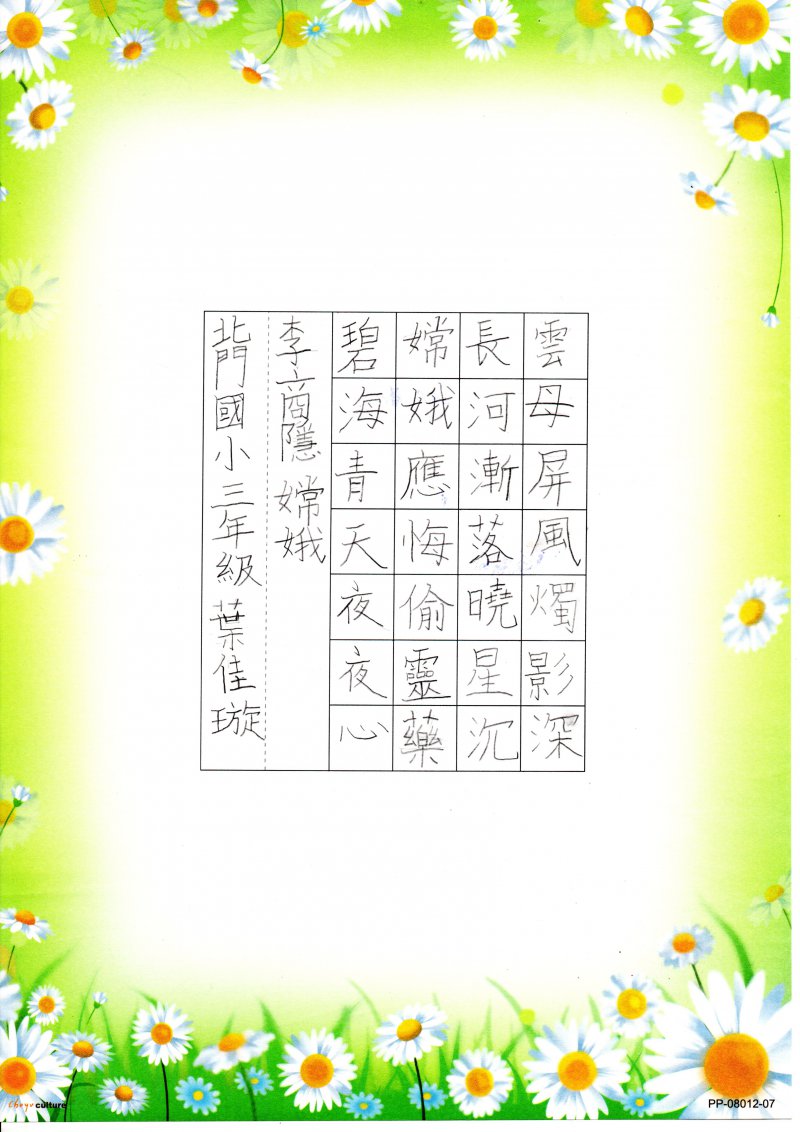 雲母屏風燭影深
長河漸落曉星沉
嫦娥應悔偷靈藥
碧海青天夜夜心
李商隱 嫦娥
北門國小三年級 葉佳璇
culture
PP-08012-07